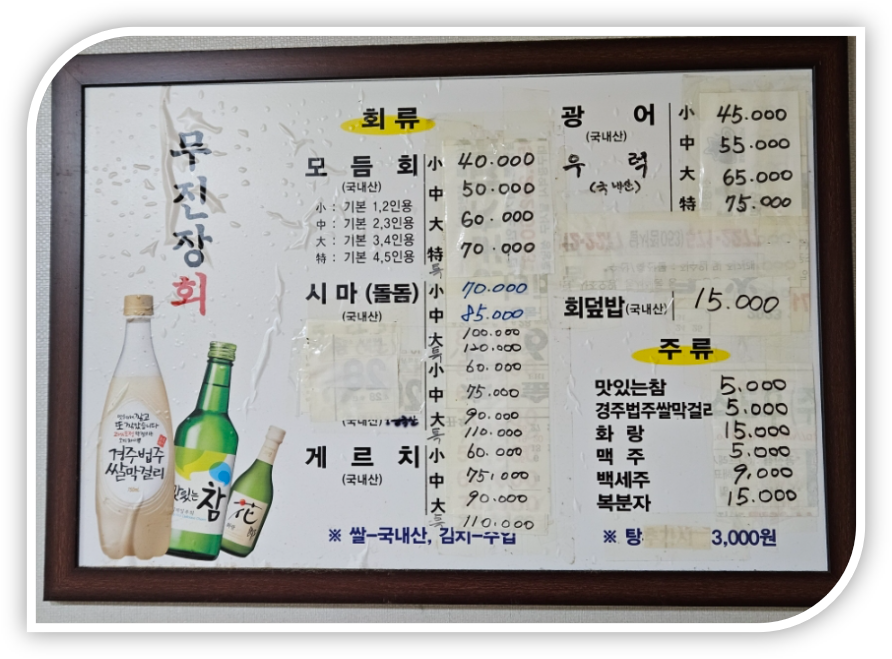 무진장회
회류
모듬회 小 40.000
(국내산) 中 50.000
小 : 기본 1,2인용
中 : 기본 2,3인용
大 : 기본 3,4인용
特 : 기본 4,5인용
大 60.000
特 70.000
특
시마(돌돔) 小 70.000
(국내산) 中 85.000
大 100.000
특 120.000
小 60.000
中 75.000
大 90.000
(국내산)
특 110.000
게르치 小 60.000
(국내산) 中 75.000
大 90.000
특 110.000
※ 쌀-국내산, 김치-수입
광어 小 45.000
(국내산)
中 55.000
우럭 大 65.000
(국내산) 特 75.000
회덮밥(국내산) 15.000
주류
맛있는참 5.000
경주법주쌀막걸리 5.000
화랑 15.000
맥주 5.000
백세주 9.000
복분자 15.000
※ 탕 3,000원
경주법주
쌀막걸리
맛있는
참
花郎